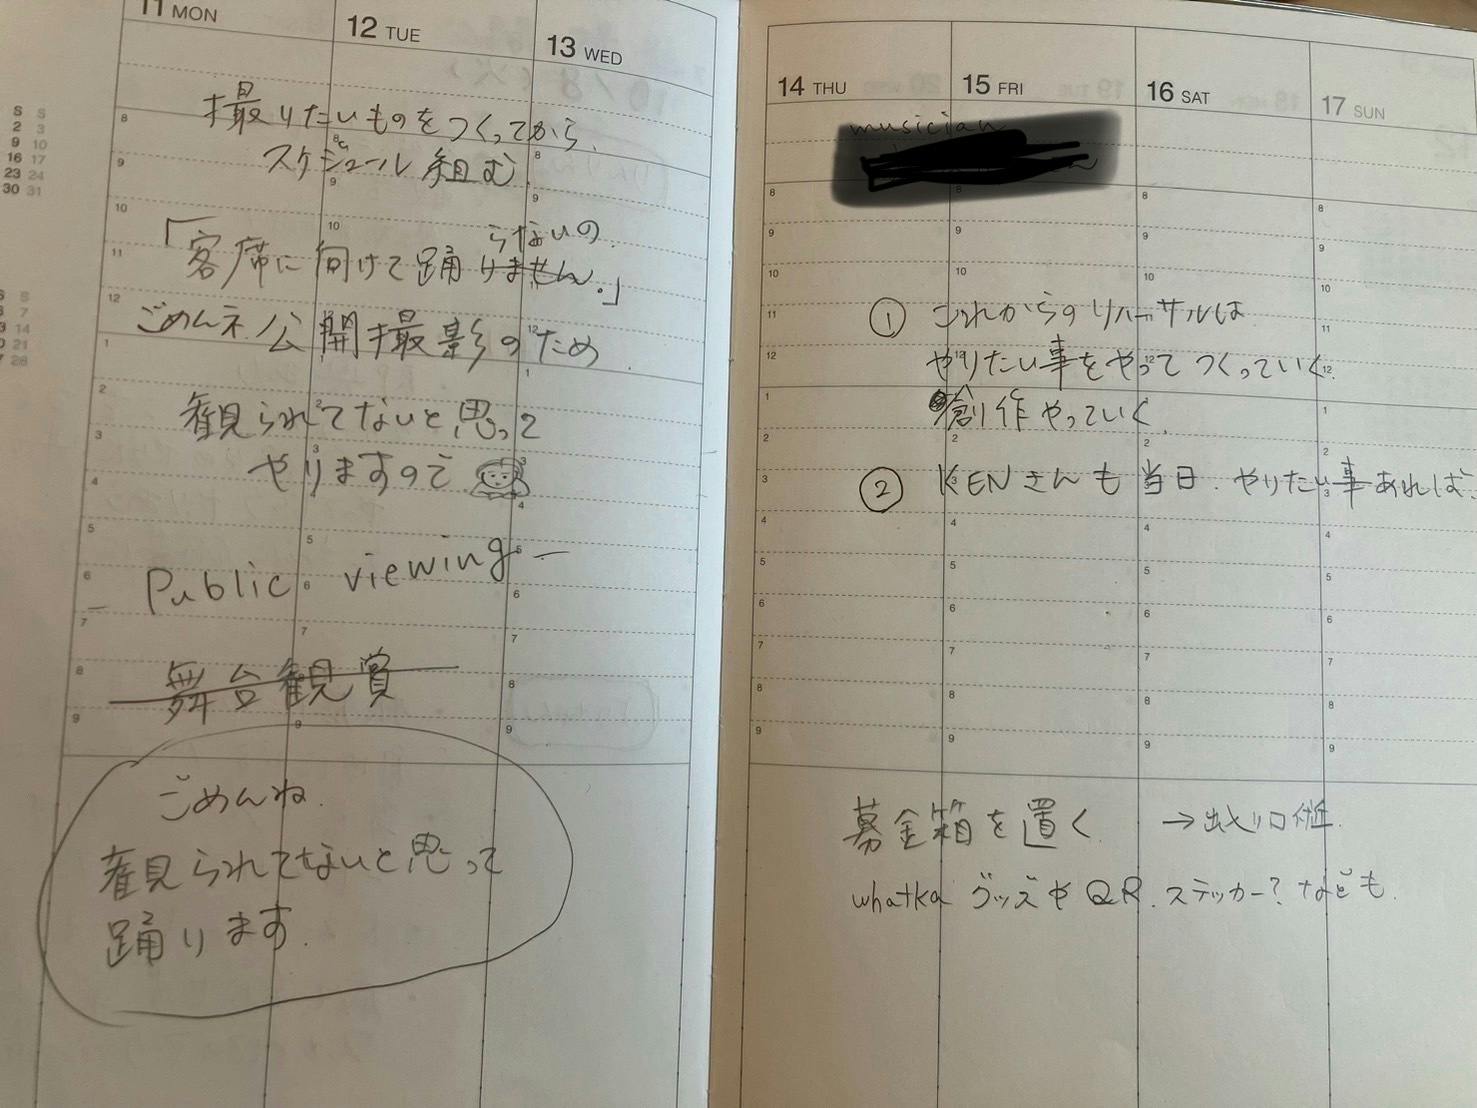 11 MON
12 TUE
13 WED
撮りたいものをつくってから、
スケジュール組む
らないの
「客席に向けて踊りません。」
ごめんネ、公開撮影のため
観られてないと思って
やりますので
Public viewing
舞台観賞
ごめんね
観られてないと思って
踊ります.
14 THU
15 FRI
16 SAT
17 SUN
musician
① これからのリハーサルは
やりたい事をやってつくっていく
創作やっていく
② KENさんも当日、やりたい事あれば
募金箱を置く →出入り口付近
whatka グッズやQR、ステッカー?なども